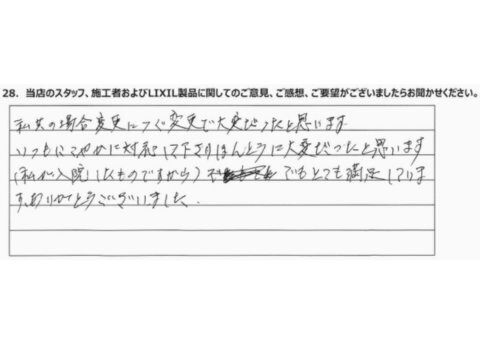 28. 当店のスタッフ、施工者およびLIXIL製品に関してのご意見、ご感想、ご要望がございましたらお聞かせください。
私共の場合変更につぐ変更で大変だったと思います
いつもにこやかに対応して下さりほんとうに大変だったと思います
(私が入院したものですから) でもとても満足していま
す。ありがとうございました。